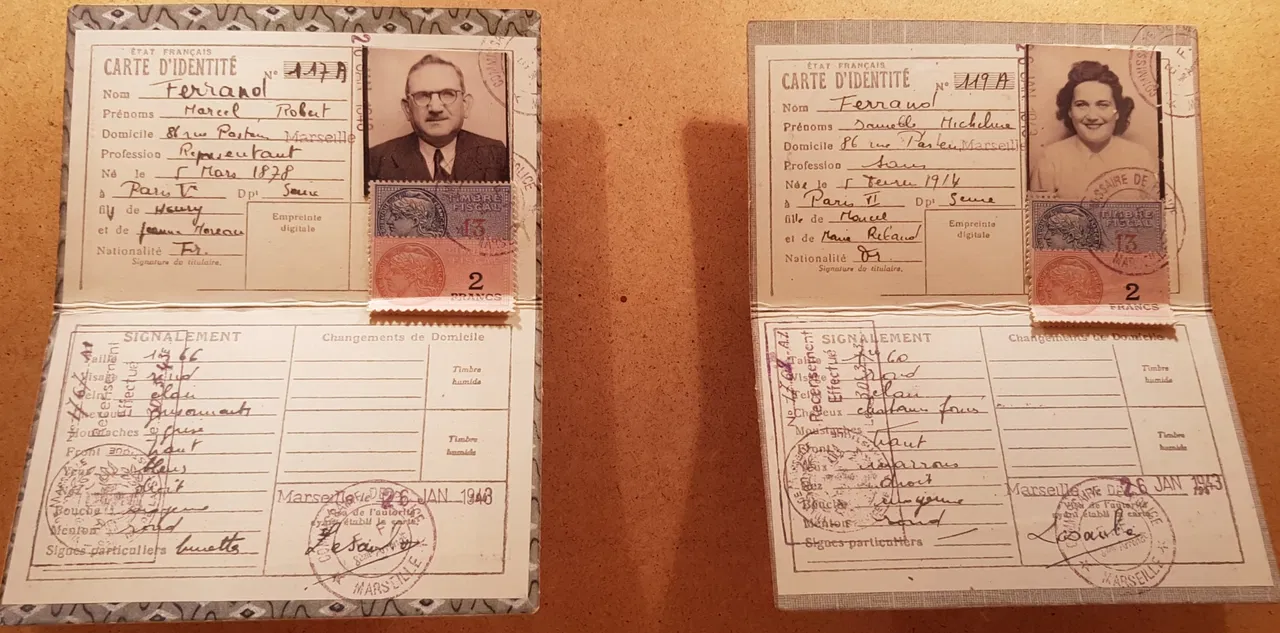 ÉTAT FRANÇAIS
CARTE D'IDENTITÉ
N° 117 A
Nom Ferrand
Prénoms Marcel, Robert
Domicile 86 rue Pasteur Marseille
Profession Représentant
Né le 5 Mars 1878
à Paris V Dpt Seine
fils de Henry
et de Jeanne Moreau
Nationalité Fr.
Signature du titulaire.
Empreinte
digitale
TIMBRE
FISCAL
13
2
FRANCS
POLICE
SIGNALEMENT
Changements de Domicile
Taille 1m 66
Visage rond
Teint clair
Cheveux grisonnants
Moustaches grise
Front haut
Yeux bleus
droit
Bouche moyenne
Menton rond
Signes particuliers lunettes
Recensement
Effectué
Timbre
humide
Timbre
humide
Marseille, le 26 JAN 1943
Visa de l'autorité
ayant établi la carte
MARSEILLE
ÉTAT FRANÇAIS
CARTE D'IDENTITÉ
N° 119 A
Nom Ferrand
Prénoms Micheline
Domicile 86 rue Pasteur, Marseille
Profession Sans
Née le 5 Février 1914
à Paris VI Dpt Seine
fille de Marcel
et de Marie
Nationalité Fr
Signature du titulaire.
Empreinte
digitale
COMMISSAIRE DE POLICE
MARSEILLE
TIMBRE
FISCAL
13
2
FRANCS
SIGNALEMENT
Changements de Domicile
Taille 1m 60
Visage rond
Teint clair
Cheveux chatains
Moustaches
Front haut
Yeux marrons
droit
Bouche moyenne
Menton rond
Signes particuliers
Recensement
Effectué
Timbre
humide
Timbre
humide
Marseille, le 26 JAN 1943
Visa de l'autorité
ayant établi la carte
COMMISSAIRE DE POLICE
MARSEILLE